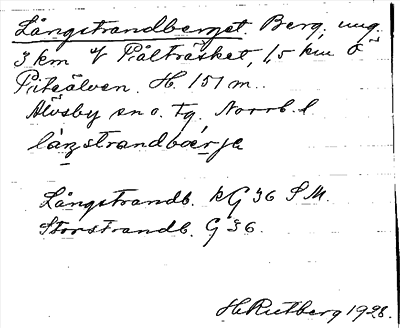 Långstrandberget Berg, ung.
3 km V Pålträsket, 1,5 km Ö
Piteälven. H. 151 m.
Älvsby sn o. tg. Norrb. l.
Långstrandb. kG 36 S M.
Storstrandb. G 36.
H Rutberg 1928.